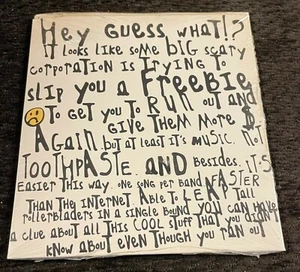 HEY GUESS WHAT!?
IT LOOKS LIKE SOME BIG SCARY
CORPORATION IS TRYING TO
SLIP YOU A FREEBIE
TO GET YOU TO RUN OUT AND
GIVE THEM MORE $
AGAIN. BUT AT LEAST IT'S MUSIC. NOT
TOOTHPASTE. AND BESIDES. IT'S
EASIER THIS WAY. ONE SONG PER BAND FASTER
THAN THE INTERNET ABLE TO LEAP TALL
ROLLERBLADERS IN A SINGLE BOUND YOU CAN MAKE
A CLUE ABOUT ALL THIS COOL STUFF THAT YOU DIDN'T
KNOW ABOUT EVEN THOUGH YOU RAN OUT